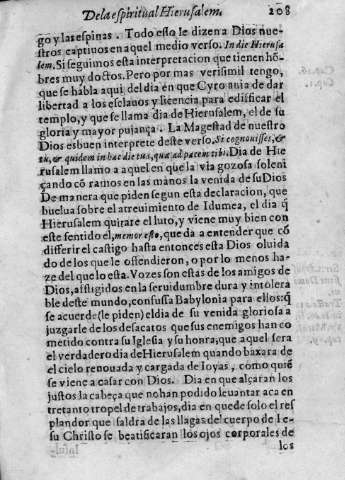 De la espiritual Hierusalem. 208
go y las espinas. Todo esto le dizen a Dios nue-
stros captiuos en aquel medio verso. In die Hierusa
lem. Si seguimos esta interpretacion que tienen hõ-
bres muy doctos. Pero por mas verisimil tengo,
que se habla aqui del dia en que Cyro auia de dar
libertad a los esclauos y licencia para edificar el
templo, y que se llama dia de Hierusalem, el de su
gloria y mayor pujança. La Magestad de nuestro
Dios es buen interprete deste verso. Si cognouisses, &
tu, & quidem in hac die tua, quæ ad pacem tibi. Dia de Hie
rusalem llamo a aquel en que la via gozosa soleni
çando cõ ramos en las manos la venida de su Dios
De manera que piden segun esta declaracion, que
buelua sobre el atreuimiento de Idumea, el dia q̃
Hierusalem quitare el luto, y viene muy bien con
este sentido el, memor esto, que da a entender que cõ
differir el castigo hasta entonces esta Dios oluida
do de los que le offendieron, o por lo menos ha-
ze del que lo esta. Vozes son estas de los amigos de
Dios, afligidos en la seruidumbre dura y intolera
ble deste mundo, confussa Babylonia para ellos: q̃
se acuerde (le piden) el dia de su venida gloriosa a
juzgarle de los desacatos que sus enemigos han co
metido contra su Iglesia y su honra, que aquel sera
el verdadero dia de Hierusalem quando baxara de
el cielo renouada y cargada de Ioyas, como quiẽ
se viene a casar con Dios. Dia en que alçaran los
justos la cabeça que no han podido leuantar aca en
tre tanto tropel de trabajos, dia en que de solo el res
plandor que saldra de las llagas del cuerpo de Ie-
su Christo se beatificaran los ojos corporales de
los